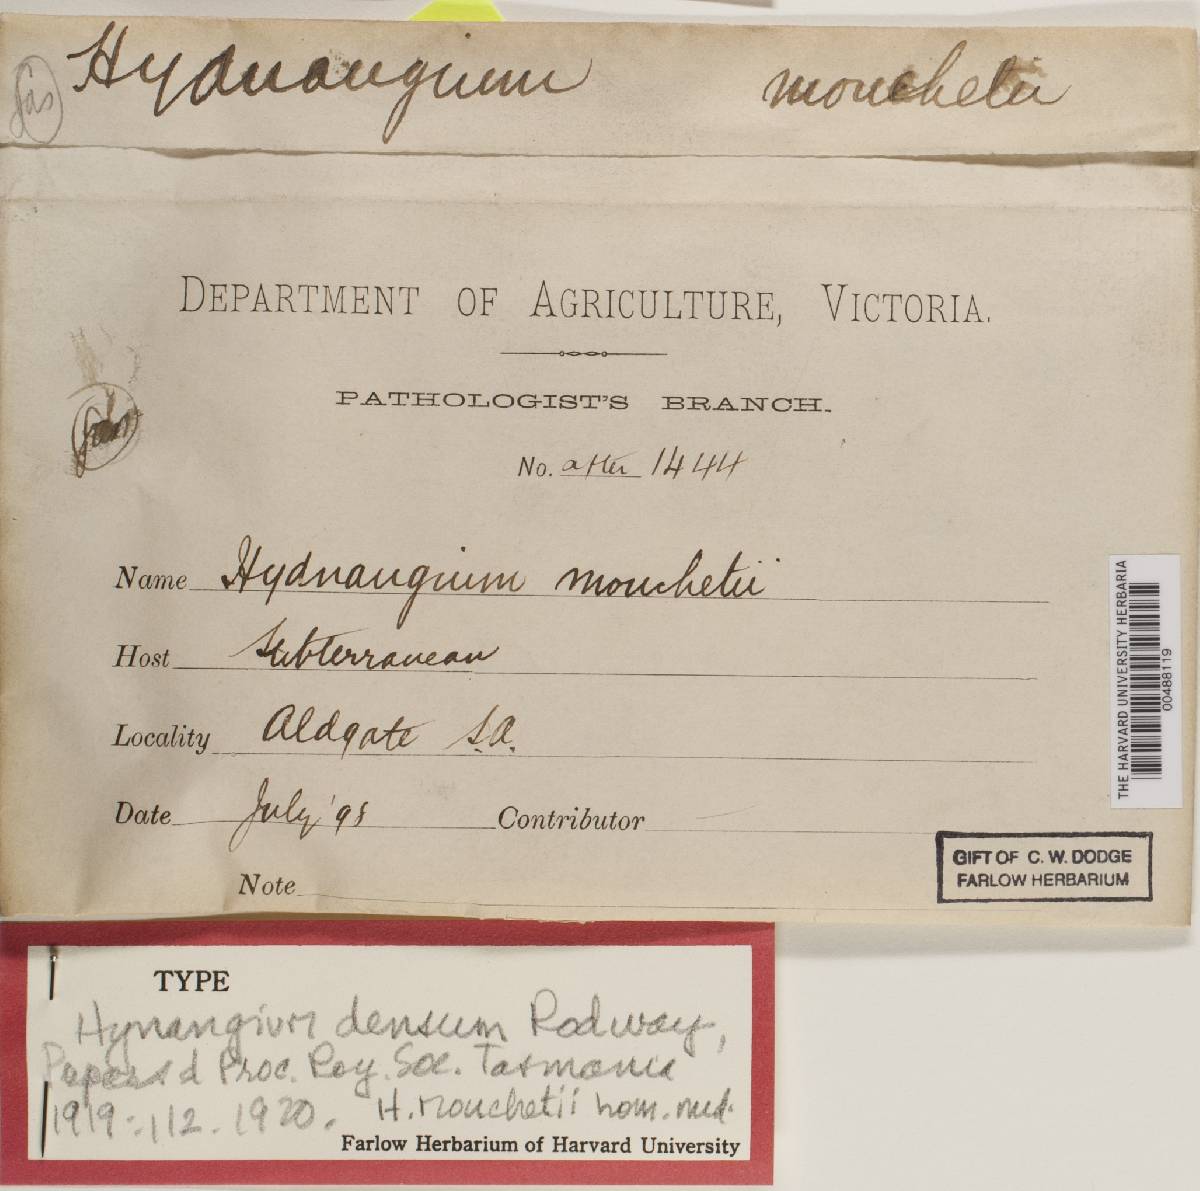 Hydnangium mouchetii
DEPARTMENT OF AGRICULTURE, VICTORIA.
PATHOLOGIST'S BRANCH.
No. after 1444
Name Hydnangium mouchetii
Host Subterranean
Locality Aldgate S.A.
Date July '95 Contributor
Note
THE HARVARD UNIVERSITY HERBARIA
00488119
GIFT OF C. W. DODGE
FARLOW HERBARIUM
TYPE
Hynangium densum Rodway,
Papers d Proc. Roy. Soc. Tasmania
1919:112. 1920. H. Mouchetii nom. nud.
Farlow Herbarium of Harvard University